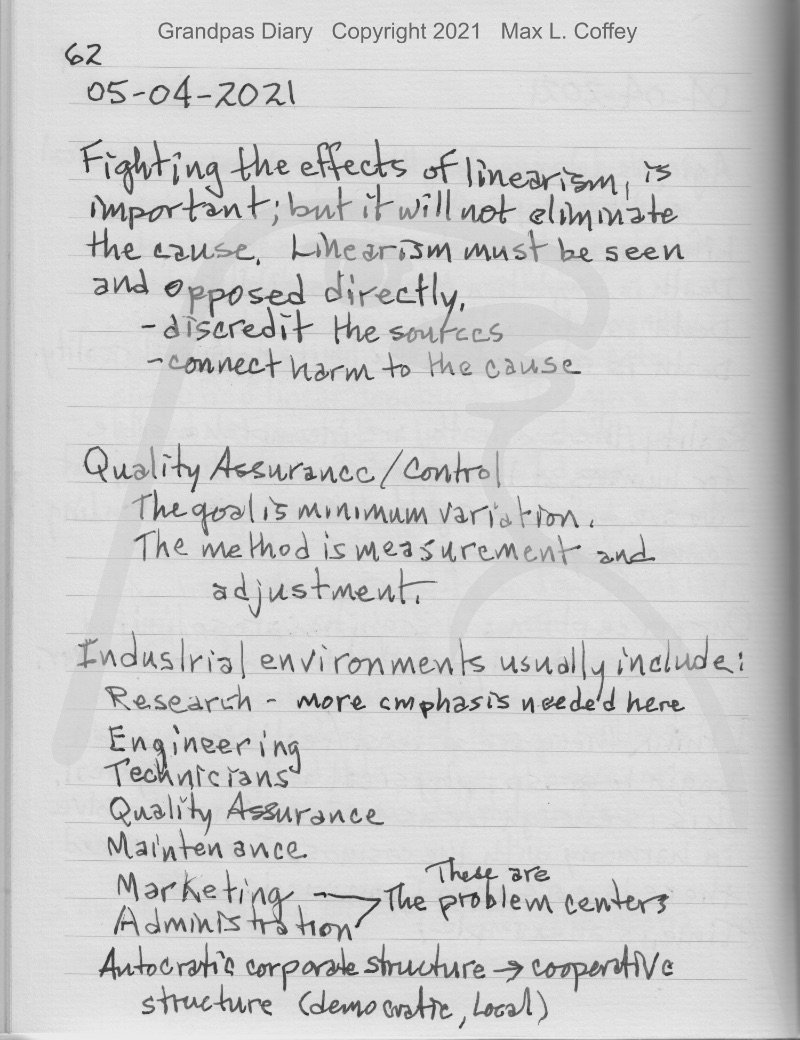 Grandpas Diary Copyright 2021 Max L. Coffey
62
05-04-2021
Fighting the effects of linearism, is
important; but it will not eliminate
the cause. Linearism must be seen
and opposed directly.
-discredit the sources
-connect harm to the cause
Quality Assurance/Control
The goal is minimum variation.
The method is measurement and
adjustment.
Industrial environments usually include:
Research - more emphasis needed here
Engineering
Technicians
Quality Assurance
Maintenance
These are
Marketing → The problem centers
Administration
Autocratic corporate structure → cooperative
structure (democratic, Local)